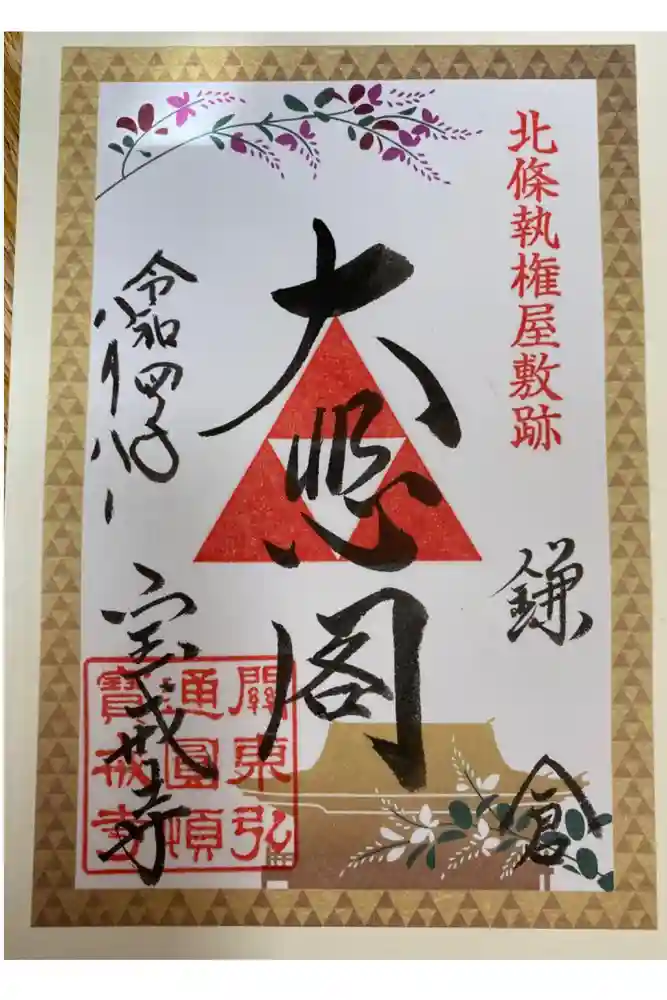 北條執権屋敷跡
鎌倉
大悲閣
令和四年
八月十八日
宝戒寺
關東弘
通圓頓
寶戒寺